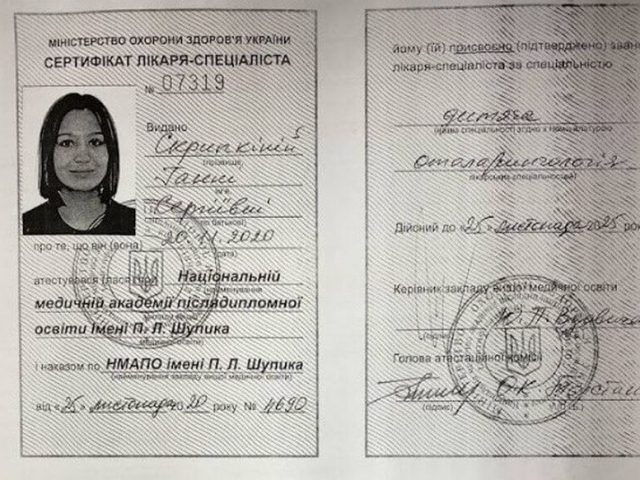 МІНІСТЕРСТВО ОХОРОНИ ЗДОРОВ'Я УКРАЇНИ
СЕРТИФІКАТ ЛІКАРЯ-СПЕЦІАЛІСТА
№ 07319
Видано
Скрипкіній
(прізвище)
Ганні
(ім'я)
Сергіївні
20.11.2020
(дата)
про те, що він (вона)
Національній
медичній академії післядипломної
освіти імені П. Л. Шупика
і наказом по НМАПО імені П. Л. Шупика
(найменування закладу вищої медичної освіти)
від «25» листопада 2020 року № 4690
йому (їй) присвоєно (підтверджено)
лікаря-спеціаліста за спеціальністю
дитяча
отоларингологія
лікарських спеціальностей)
Дійсний до «25» листопада 2025
Керівник закладу вищої медичної освіти
(підпис)
Голова атестаційної комісії
О.К.
(підпис)